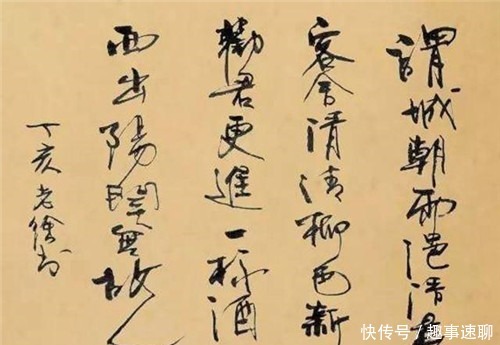 渭城朝雨浥清
客舍清清柳色新
勸君更進一杯酒
西出陽関無故人
丁亥老徐书
快传号 / 趣事速聊